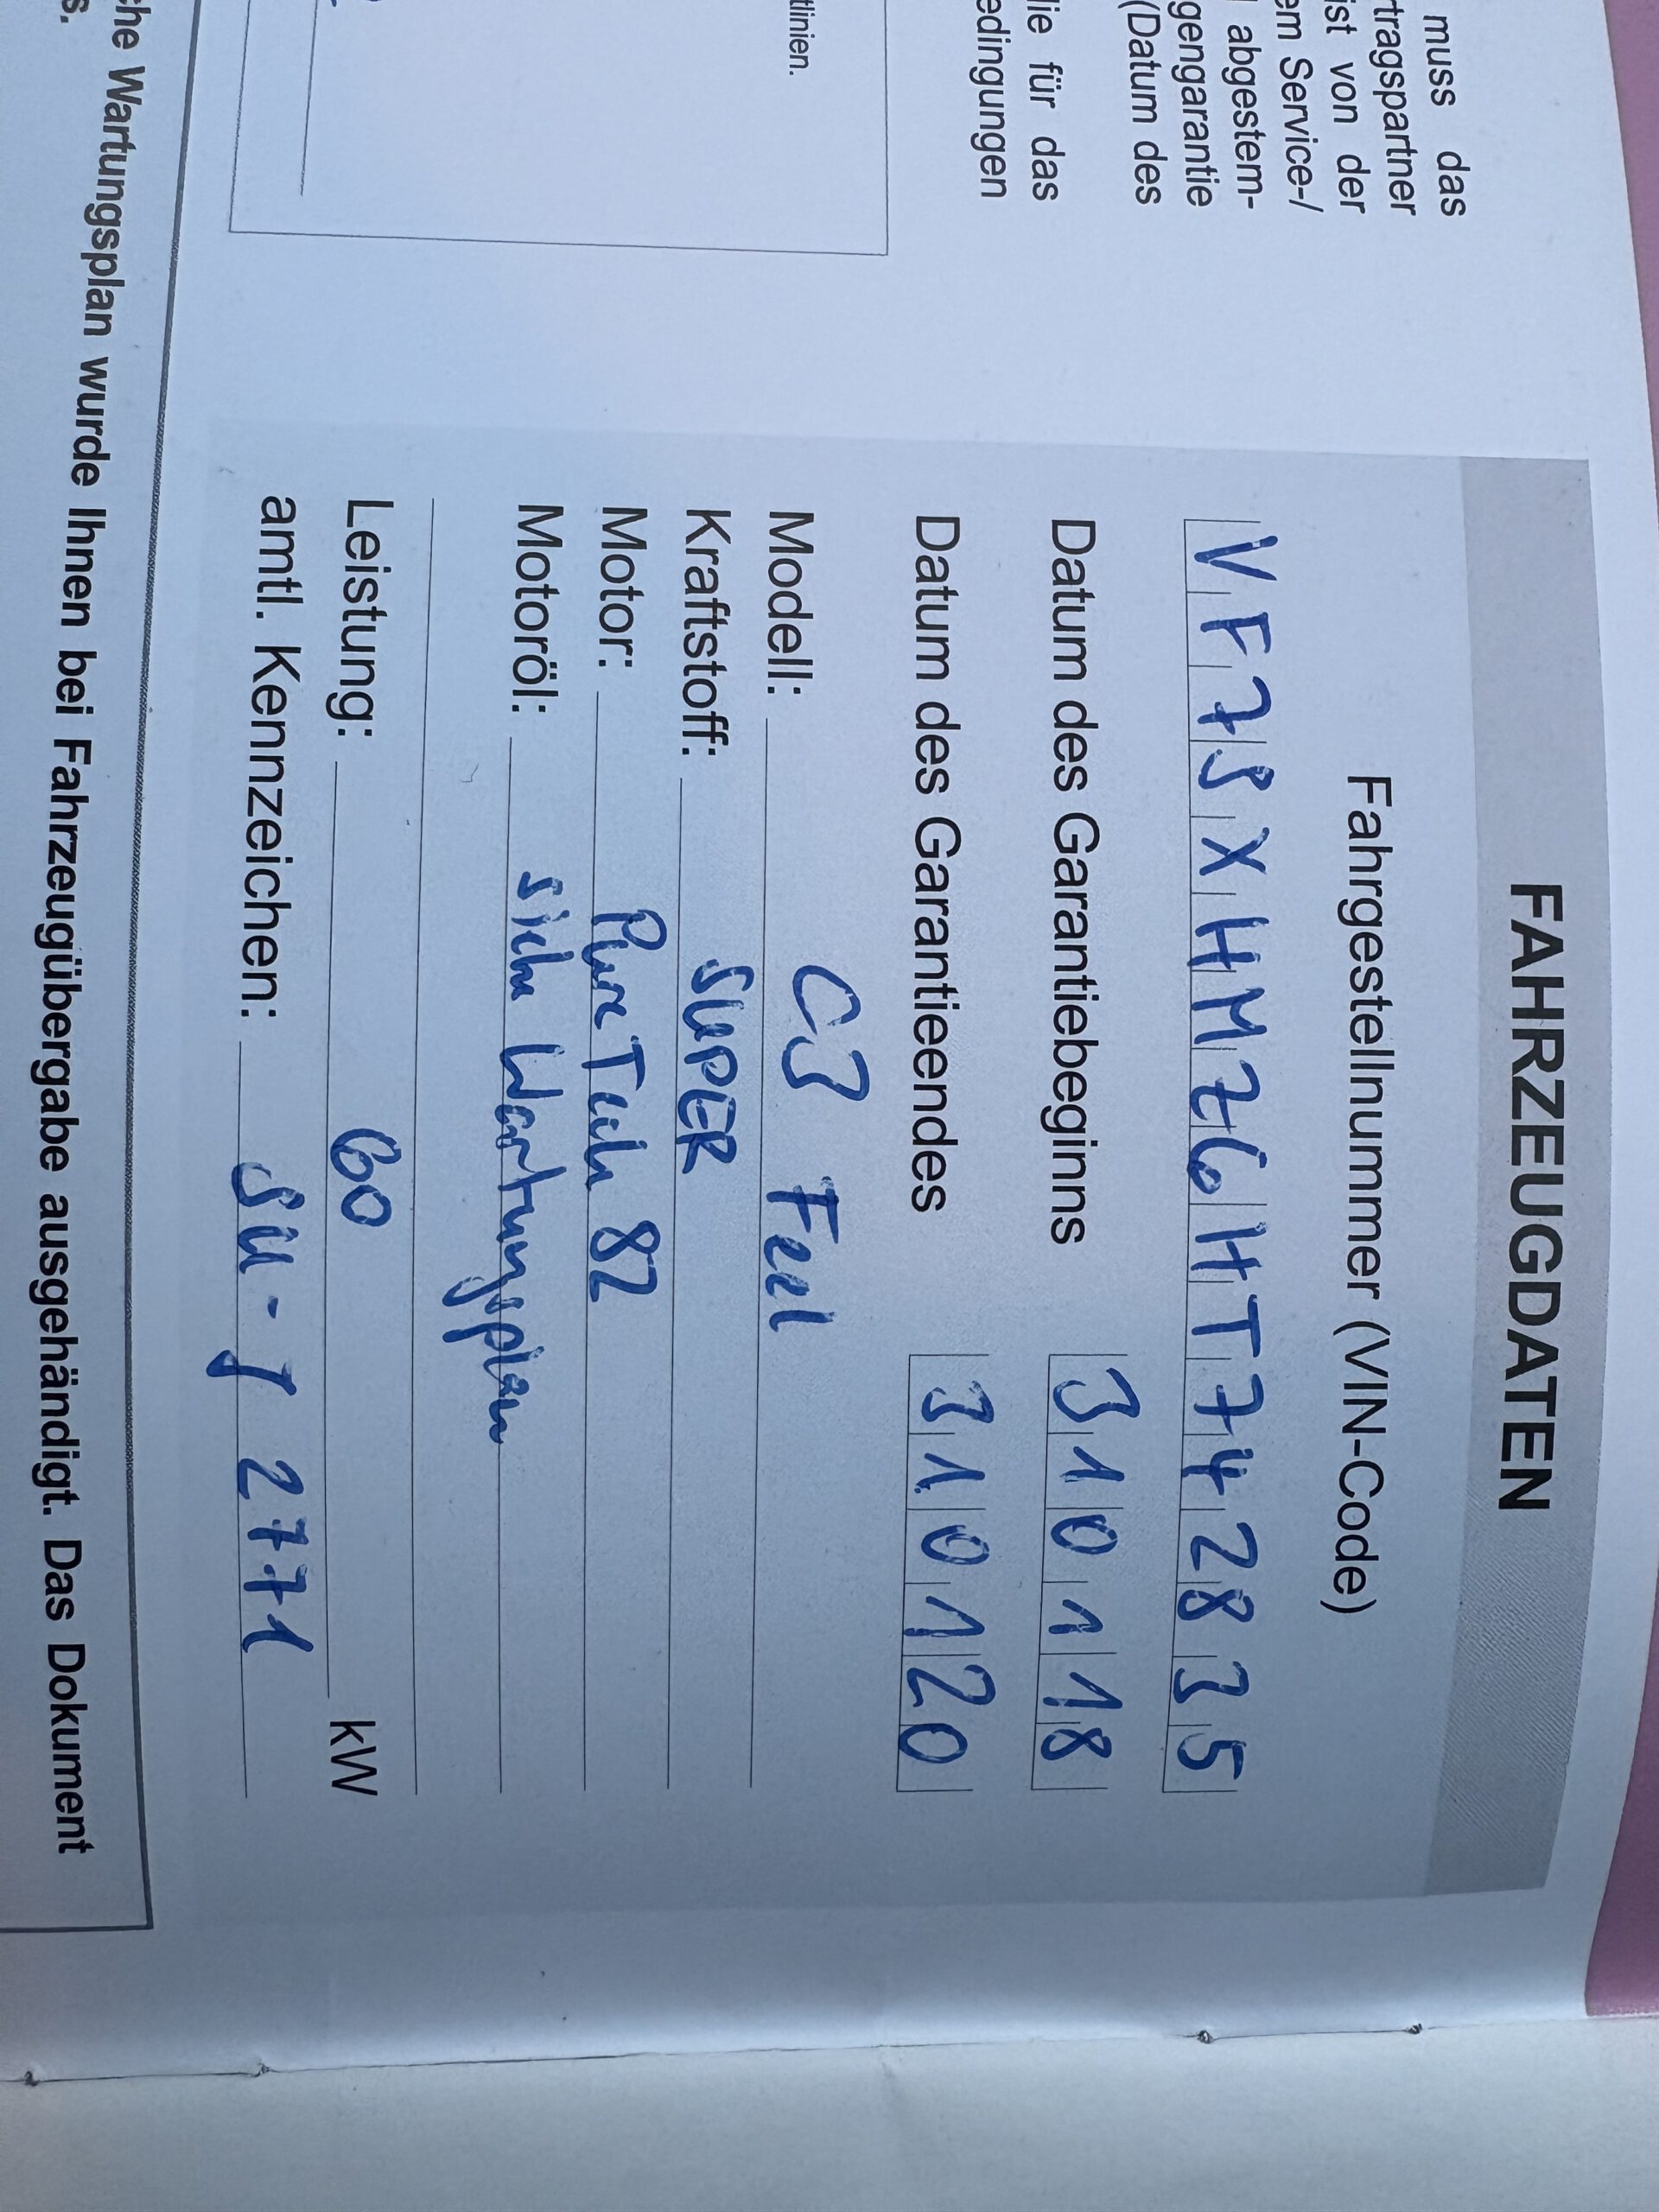 muss das
rtragspartner
ist von der
em Service-/
abgestem-
gengarantie
(Datum des
die für das
edingungen
tlinien.
FAHRZEUGDATEN
Fahrgestellnummer (VIN-Code)
VF7SXHMZ6HT742835
Datum des Garantiebeginns 310118
Datum des Garantieendes 310120
Modell: C3 Feel
Kraftstoff: SUPER
Motor: PureTech 82
Motoröl: siehe Wartungsplan
Leistung: 60 kW
amtl. Kennzeichen: SU - J 2771
che Wartungsplan wurde Ihnen bei Fahrzeugübergabe ausgehändigt. Das Dokument
s.